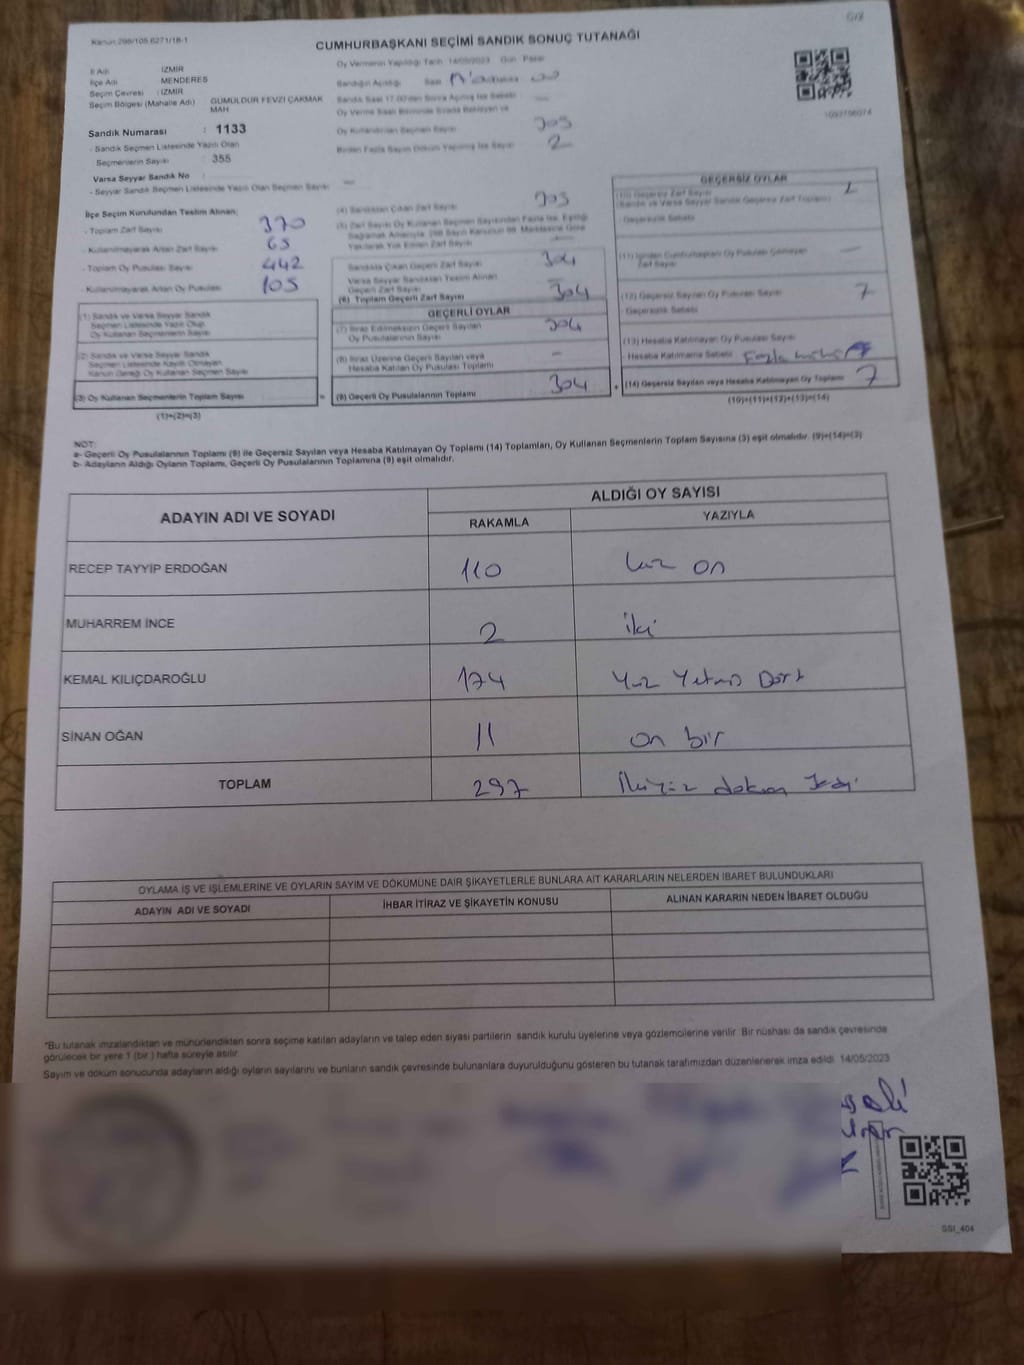 Kanun:298/105 6271/18-1
CUMHURBAŞKANI SEÇİMİ SANDIK SONUÇ TUTANAĞI
İl Adı : İZMİR
İlçe Adı : MENDERES
Seçim Çevresi : İZMİR
Seçim Bölgesi (Mahalle Adı) : GÜMÜLDÜR FEVZİ ÇAKMAK MAH
Sandık Numarası : 1133
- Sandık Seçmen Listesinde Yazılı Olan
Seçmenlerin Sayısı : 355
Varsa Seyyar Sandık No
- Seyyar Sandık Seçmen Listesinde Yazılı Olan Seçmen Sayısı —
İlçe Seçim Kurulundan Teslim Alınan;
- Toplam Zarf Sayısı 370
- Kullanılmayarak Artan Zarf Sayısı 65
- Toplam Oy Pusulası Sayısı 442
- Kullanılmayarak Artan Oy Pusulası 105
(1) Sandık ve Varsa Seyyar Sandık
Seçmen Listesinde Yazılı Olup
Oy Kullanan Seçmenlerin Sayısı
(2) Sandık ve Varsa Seyyar Sandık
Seçmen Listesinde Kayıtlı Olmayan
Kanun Gereği Oy Kullanan Seçmen Sayısı
(3) Oy Kullanan Seçmenlerin Toplam Sayısı
(1)+(2)=(3)
Oy Vermenin Yapıldığı Tarih 14/05/2023 Gün Pazar
Sandığın Açıldığı Saat
Oy Kullandırılan Seçmen Sayısı 305
Birden Fazla Sayım Döküm Yapılmış İse Sayısı 2
(4) Sandıktan Çıkan Zarf Sayısı 305
Yakılarak Yok Edilen Zarf Sayısı
Sandıkta Çıkan Geçerli Zarf Sayısı 304
Varsa Seyyar Sandıktan Teslim Alınan
Geçerli Zarf Sayısı
(6) Toplam Geçerli Zarf Sayısı 304
GEÇERLİ OYLAR
(7) İtiraz Edilmeksizin Geçerli Sayılan
Oy Pusulalarının Sayısı 304
(8) İtiraz Üzerine Geçerli Sayılan veya
Hesaba Katılan Oy Pusulası Toplamı —
(9) Geçerli Oy Pusulalarının Toplamı 304
GEÇERSİZ OYLAR
(10) Geçersiz Zarf Sayısı
(Sandık ve Varsa Seyyar Sandık Geçersiz Zarf Toplamı)
Geçersizlik Sebebi
(11) İçinden Cumhurbaşkanı Oy Pusulası Çıkmayan
Zarf Sayısı —
(12) Geçersiz Sayılan Oy Pusulası Sayısı 7
Geçersizlik Sebebi
(13) Hesaba Katılmayan Oy Pusulası Sayısı
Hesaba Katılmama Sebebi
(14) Geçersiz Sayılan veya Hesaba Katılmayan Oy Toplamı 7
(10)+(11)+(12)+(13)=(14)
NOT:
a- Geçerli Oy Pusulalarının Toplamı (9) ile Geçersiz Sayılan veya Hesaba Katılmayan Oy Toplamı (14) Toplamları, Oy Kullanan Seçmenlerin Toplam Sayısına (3) eşit olmalıdır. (9)+(14)=(3)
b- Adayların Aldığı Oyların Toplamı, Geçerli Oy Pusulalarının Toplamına (9) eşit olmalıdır.
ADAYIN ADI VE SOYADI
ALDIĞI OY SAYISI
RAKAMLA YAZIYLA
RECEP TAYYİP ERDOĞAN 110 Yüz on
MUHARREM İNCE 2 iki
KEMAL KILIÇDAROĞLU 174 Yüz Yetmiş Dört
SİNAN OĞAN 11 on bir
TOPLAM 297 İkiyüz doksan Yedi
OYLAMA İŞ VE İŞLEMLERİNE VE OYLARIN SAYIM VE DÖKÜMÜNE DAİR ŞİKAYETLERLE BUNLARA AİT KARARLARIN NELERDEN İBARET BULUNDUKLARI
ADAYIN ADI VE SOYADI İHBAR İTİRAZ VE ŞİKAYETİN KONUSU ALINAN KARARIN NEDEN İBARET OLDUĞU
*Bu tutanak imzalandıktan ve mühürlendikten sonra seçime katılan adayların ve talep eden siyasi partilerin sandık kurulu üyelerine veya gözlemcilerine verilir. Bir nüshası da sandık çevresinde
görülecek bir yere 1 (bir) hafta süreyle asılır.
Sayım ve döküm sonucunda adayların aldığı oyların sayılarını ve bunların sandık çevresinde bulunanlara duyurulduğunu gösteren bu tutanak tarafımızdan düzenlenerek imza edildi. 14/05/2023
SSI_404